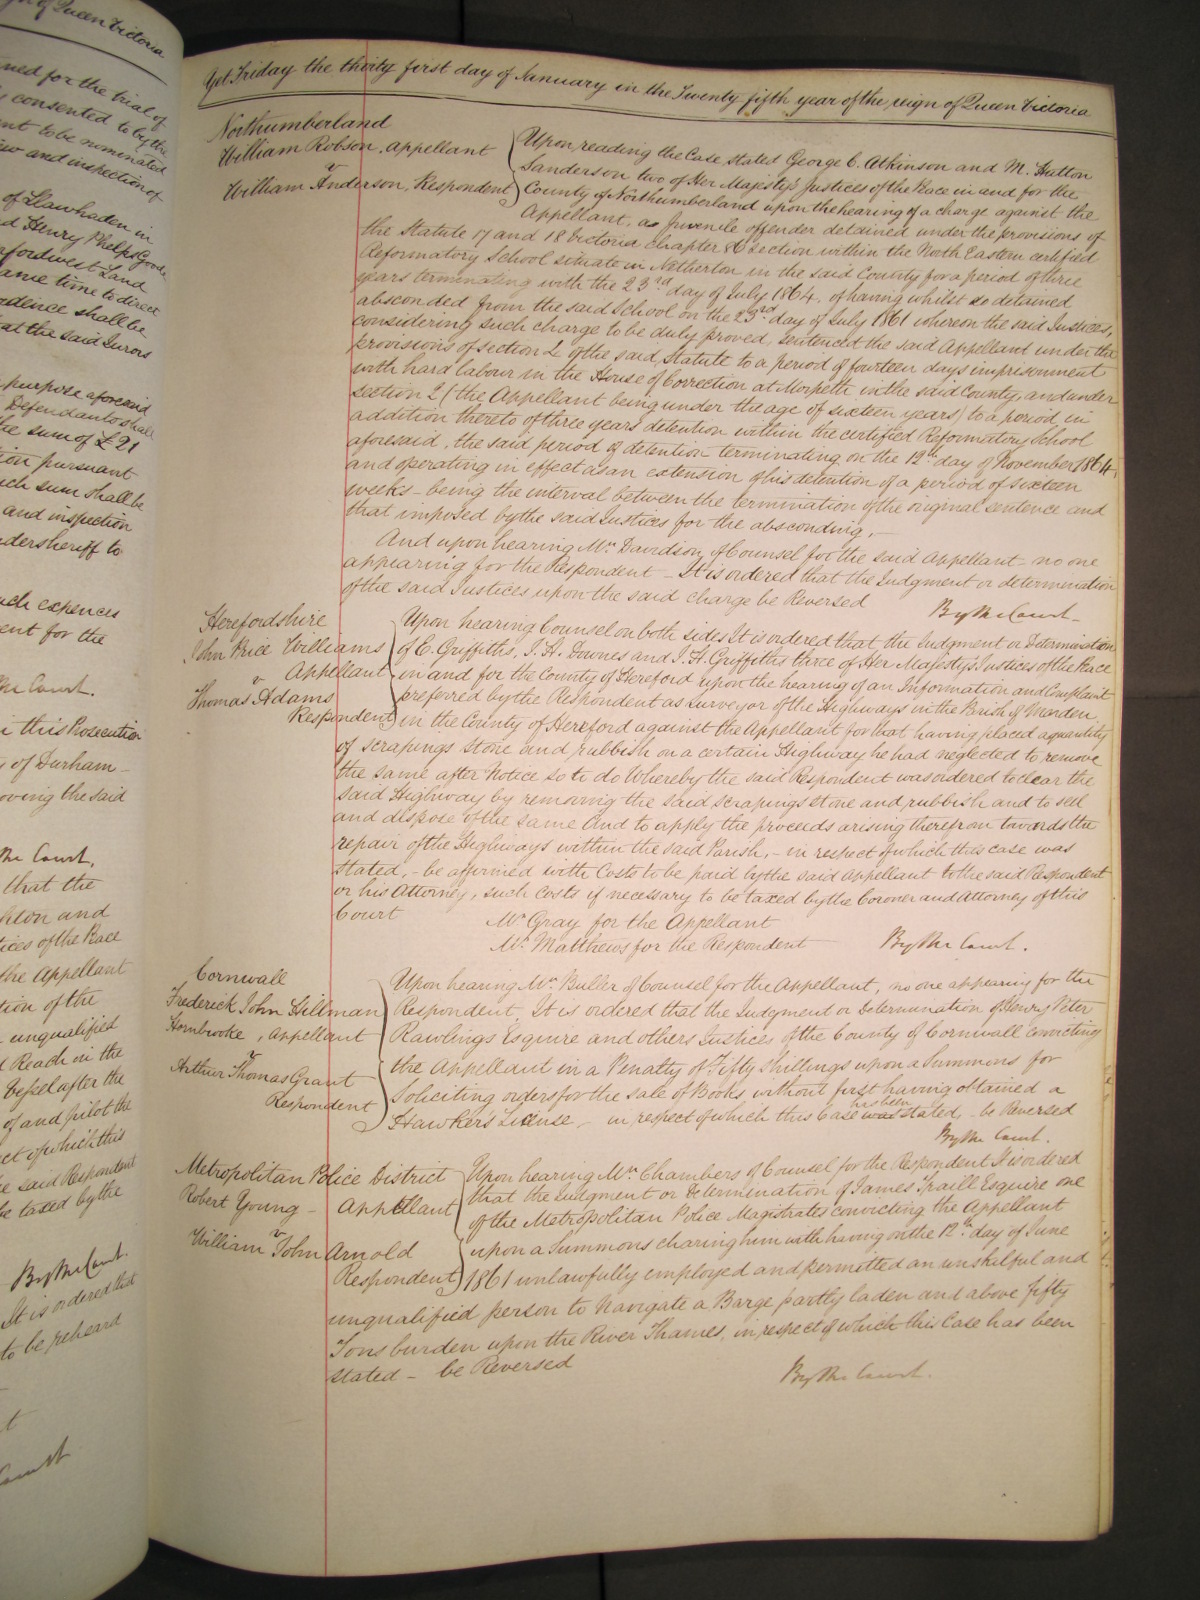 gn of Queen Victoria
ned for the trial of
consented to by the
ent to be nominated
iew and inspection of
of Llawhaden in
d Henry Phelps Goode
rfordwest Land
ame time to direct
idence shall be
at the said Jurors
purpose aforesaid
Defendants shall
the sum of £21
ion pursuant
uch sum shall be
and inspection
dersheriff to
uch expences
ent for the
the Court.
in this Prosecution
y of Durham
oving the said
the Court,
that the
heon and
tices of the Peace
the Appellant
tion of the
unqualified
Reach in the
Vessel after the
of and pilot the
ect of which this
e said Respondent
be taxed by the
By the Court.
It is ordered that
to be reheard
t
Court
Yet Friday the thirty first day of January in the Twenty fifth year of the reign of Queen Victoria
Northumberland
William Robson, appellant
v
William Anderson, Respondent
Upon reading the Case stated George C. Atkinson and M. Hatton
Sanderson two of Her Majesty's Justices of the Peace in and for the
County of Northumberland upon the hearing of a charge against the
Appellant, as Juvenile offender detained under the provisions of
the Statute 17 and 18 Victoria chapter 86 section within the North Eastern certified
Reformatory School situate in Netherton in the said County for a period of three
years terminating with the 23rd day of July 1864, of having whilst so detained
absconded from the said School on the 23rd day of July 1861 whereon the said Justices,
considering such charge to be duly proved, sentenced the said Appellant under the
provisions of section 2 of the said Statute to a period of fourteen days imprisonment
with hard labour in the House of Correction at Morpeth in the said County, and under
section 2 (the Appellant being under the age of sixteen years) to a period in
addition thereto of three years detention within the certified Reformatory School
aforesaid, the said period of detention terminating on the 12th day of November 1864,
and operating in effect as an extension of his detention of a period of sixteen
weeks - being the interval between the termination of the original sentence and
that imposed by the said Justices for the absconding, -
And upon hearing Mr. Davidson of Counsel for the said Appellant - no one
appearing for the Respondent - It is ordered that the Judgment or determination
of the said Justices upon the said charge be Reversed
By the Court -
Herefordshire
John Price Williams
Appellant
v
Thomas Adams
Respondent
Upon hearing Counsel on both sides It is ordered that the Judgment or Determination
of E. Griffiths, J. H. Downes and J. H. Griffiths three of Her Majesty's Justices of the Peace
in and for the County of Hereford upon the hearing of an Information and Complaint
preferred by the Respondent as Surveyor of the Highways in the Parish of Marden
in the County of Hereford against the Appellant for that having placed a quantity
of scrapings stone and rubbish on a certain Highway he had neglected to remove
the same after Notice so to do Whereby the said Respondent was ordered to clear the
said Highway by removing the said scrapings stone and rubbish and to sell
and dispose of the same and to apply the proceeds arising therefrom towards the
repair of the Highways within the said Parish, - in respect of which this case was
stated, - be affirmed with Costs to be paid by the said Appellant to the said Respondent
or his Attorney, such Costs if necessary to be taxed by the Coroner and Attorney of this
Court
Mr Gray for the Appellant
Mr. Matthews for the Respondent
By the Court.
Cornwall
Frederick John Hillman
Hornbrooke, Appellant
v
Arthur Thomas Grant
Respondent
Upon hearing Mr. Buller of Counsel for the Appellant, no one appearing for the
Respondent, It is ordered that the Judgment or Determination of Henry Peter
Rawlings Esquire and others Justices of the County of Cornwall convicting
the Appellant in a Penalty of Fifty Shillings upon a Summons for
Soliciting orders for the sale of Books without first having obtained a
Hawker's License, - in respect of which this Case was has been stated - be Reversed
By the Court.
Metropolitan Police District
Robert Young - Appellant
v
William John Arnold
Respondent
Upon hearing Mr. Chambers of Counsel for the Respondent It is ordered
that the Judgment or Determination of James Traill Esquire one
of the Metropolitan Police Magistrates convicting the Appellant
upon a Summons charing him with having on the 12th day of June
1861 unlawfully employed and permitted an unskilful and
unqualified person to Navigate a Barge partly laden and above fifty
Tons burden upon the River Thames, in respect of which this Case has been
stated - be Reversed
By the Court.